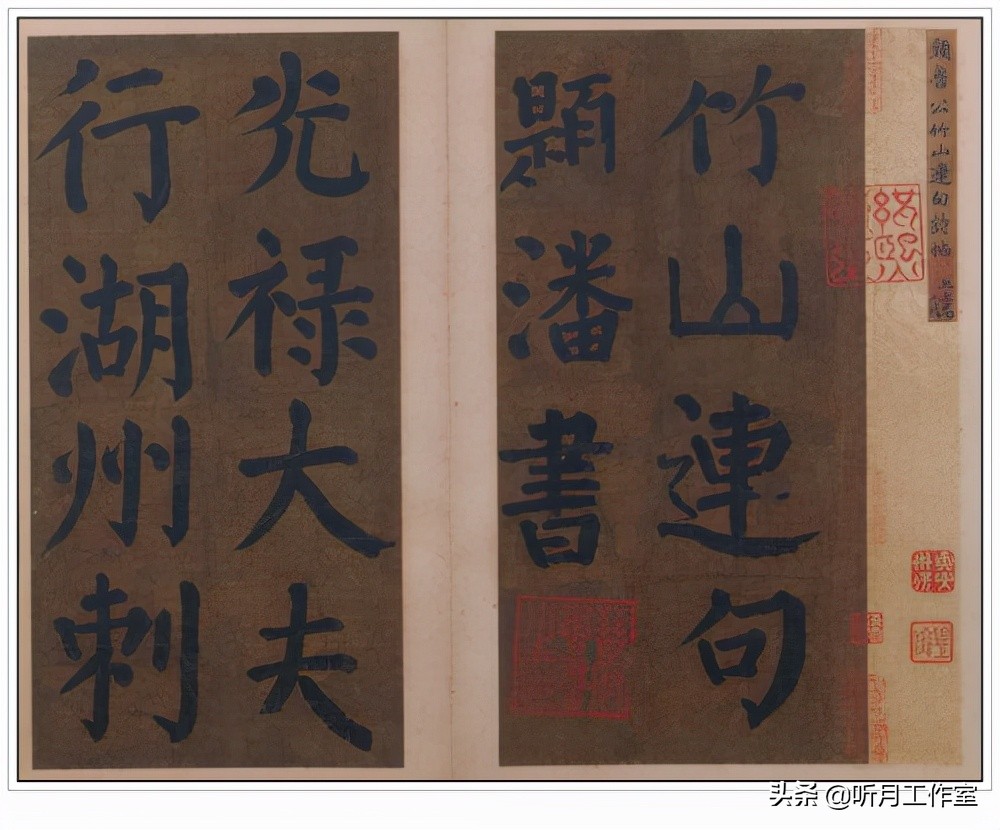 顏魯公竹山連句詩帖
竹山連句
題潘書
光禄大夫
行湖州刺
头条 @听月工作室